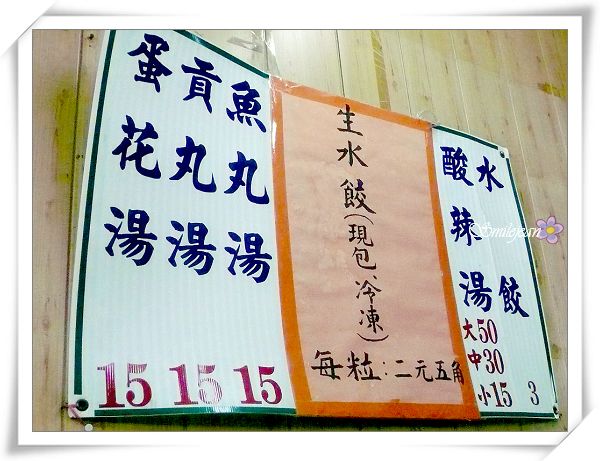 水餃
3
酸辣湯
大50
中30
小15
生水餃(現包、冷凍)
每粒:二元五角
魚丸湯
15
貢丸湯
15
蛋花湯
15
Smilejean